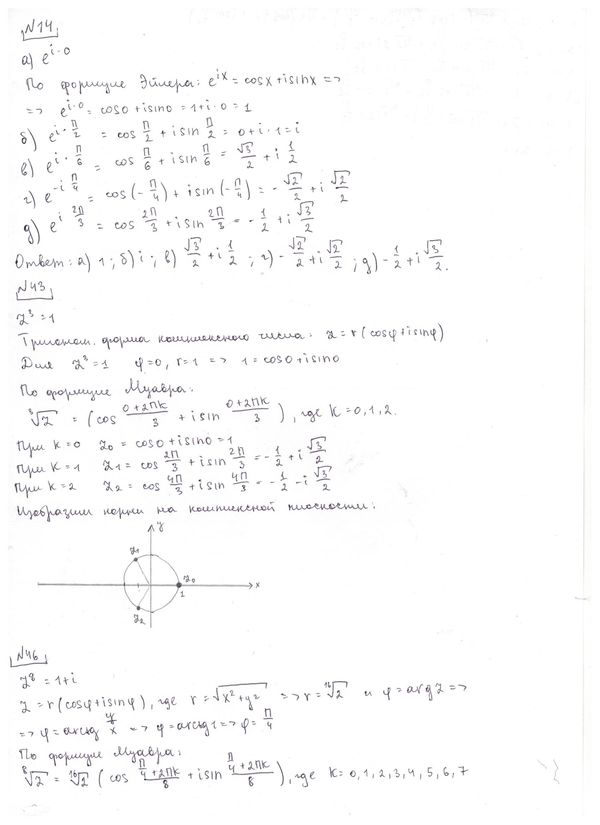 №14
а) e^{i·0}
По формуле Эйлера: e^{ix} = cosx + isinx =>
=> e^{i·0} = cos0 + isin0 = 1 + i·0 = 1
б) e^{i·π/2} = cos π/2 + i sin π/2 = 0 + i·1 = i
в) e^{i·π/6} = cos π/6 + i sin π/6 = √3/2 + i 1/2
г) e^{-i π/4} = cos(-π/4) + i sin(-π/4) = -√2/2 + i √2/2
д) e^{i 2π/3} = cos 2π/3 + i sin 2π/3 = -1/2 + i √3/2
Ответ: а) 1; б) i; в) √3/2 + i 1/2; г) -√2/2 + i √2/2; д) -1/2 + i √3/2.
№43
Z³ = 1
Тригоном. форма комплексного числа: Z = r(cosφ + isinφ)
Для Z³ = 1 φ = 0, r = 1 => 1 = cos0 + isin0
По формуле Муавра:
³√Z = (cos (0+2πk)/3 + i sin (0+2πk)/3), где k = 0, 1, 2.
При k = 0 Z₀ = cos0 + isin0 = 1
При k = 1 Z₁ = cos 2π/3 + i sin 2π/3 = -1/2 + i √3/2
При k = 2 Z₂ = cos 4π/3 + i sin 4π/3 = -1/2 - i √3/2
Изобразим корни на комплексной плоскости:
y
Z₁
Z₀
x
1
Z₂
№46
Z⁸ = 1 + i
Z = r(cosφ + isinφ), где r = √(x² + y²) => r = ¹⁶√2 и φ = argZ =>
=> φ = arctg y/x => φ = arctg1 => φ = π/4
По формуле Муавра:
⁸√Z = ¹⁶√2 (cos (π/4+2πk)/8 + i sin (π/4+2πk)/8), где k = 0, 1, 2, 3, 4, 5, 6, 7